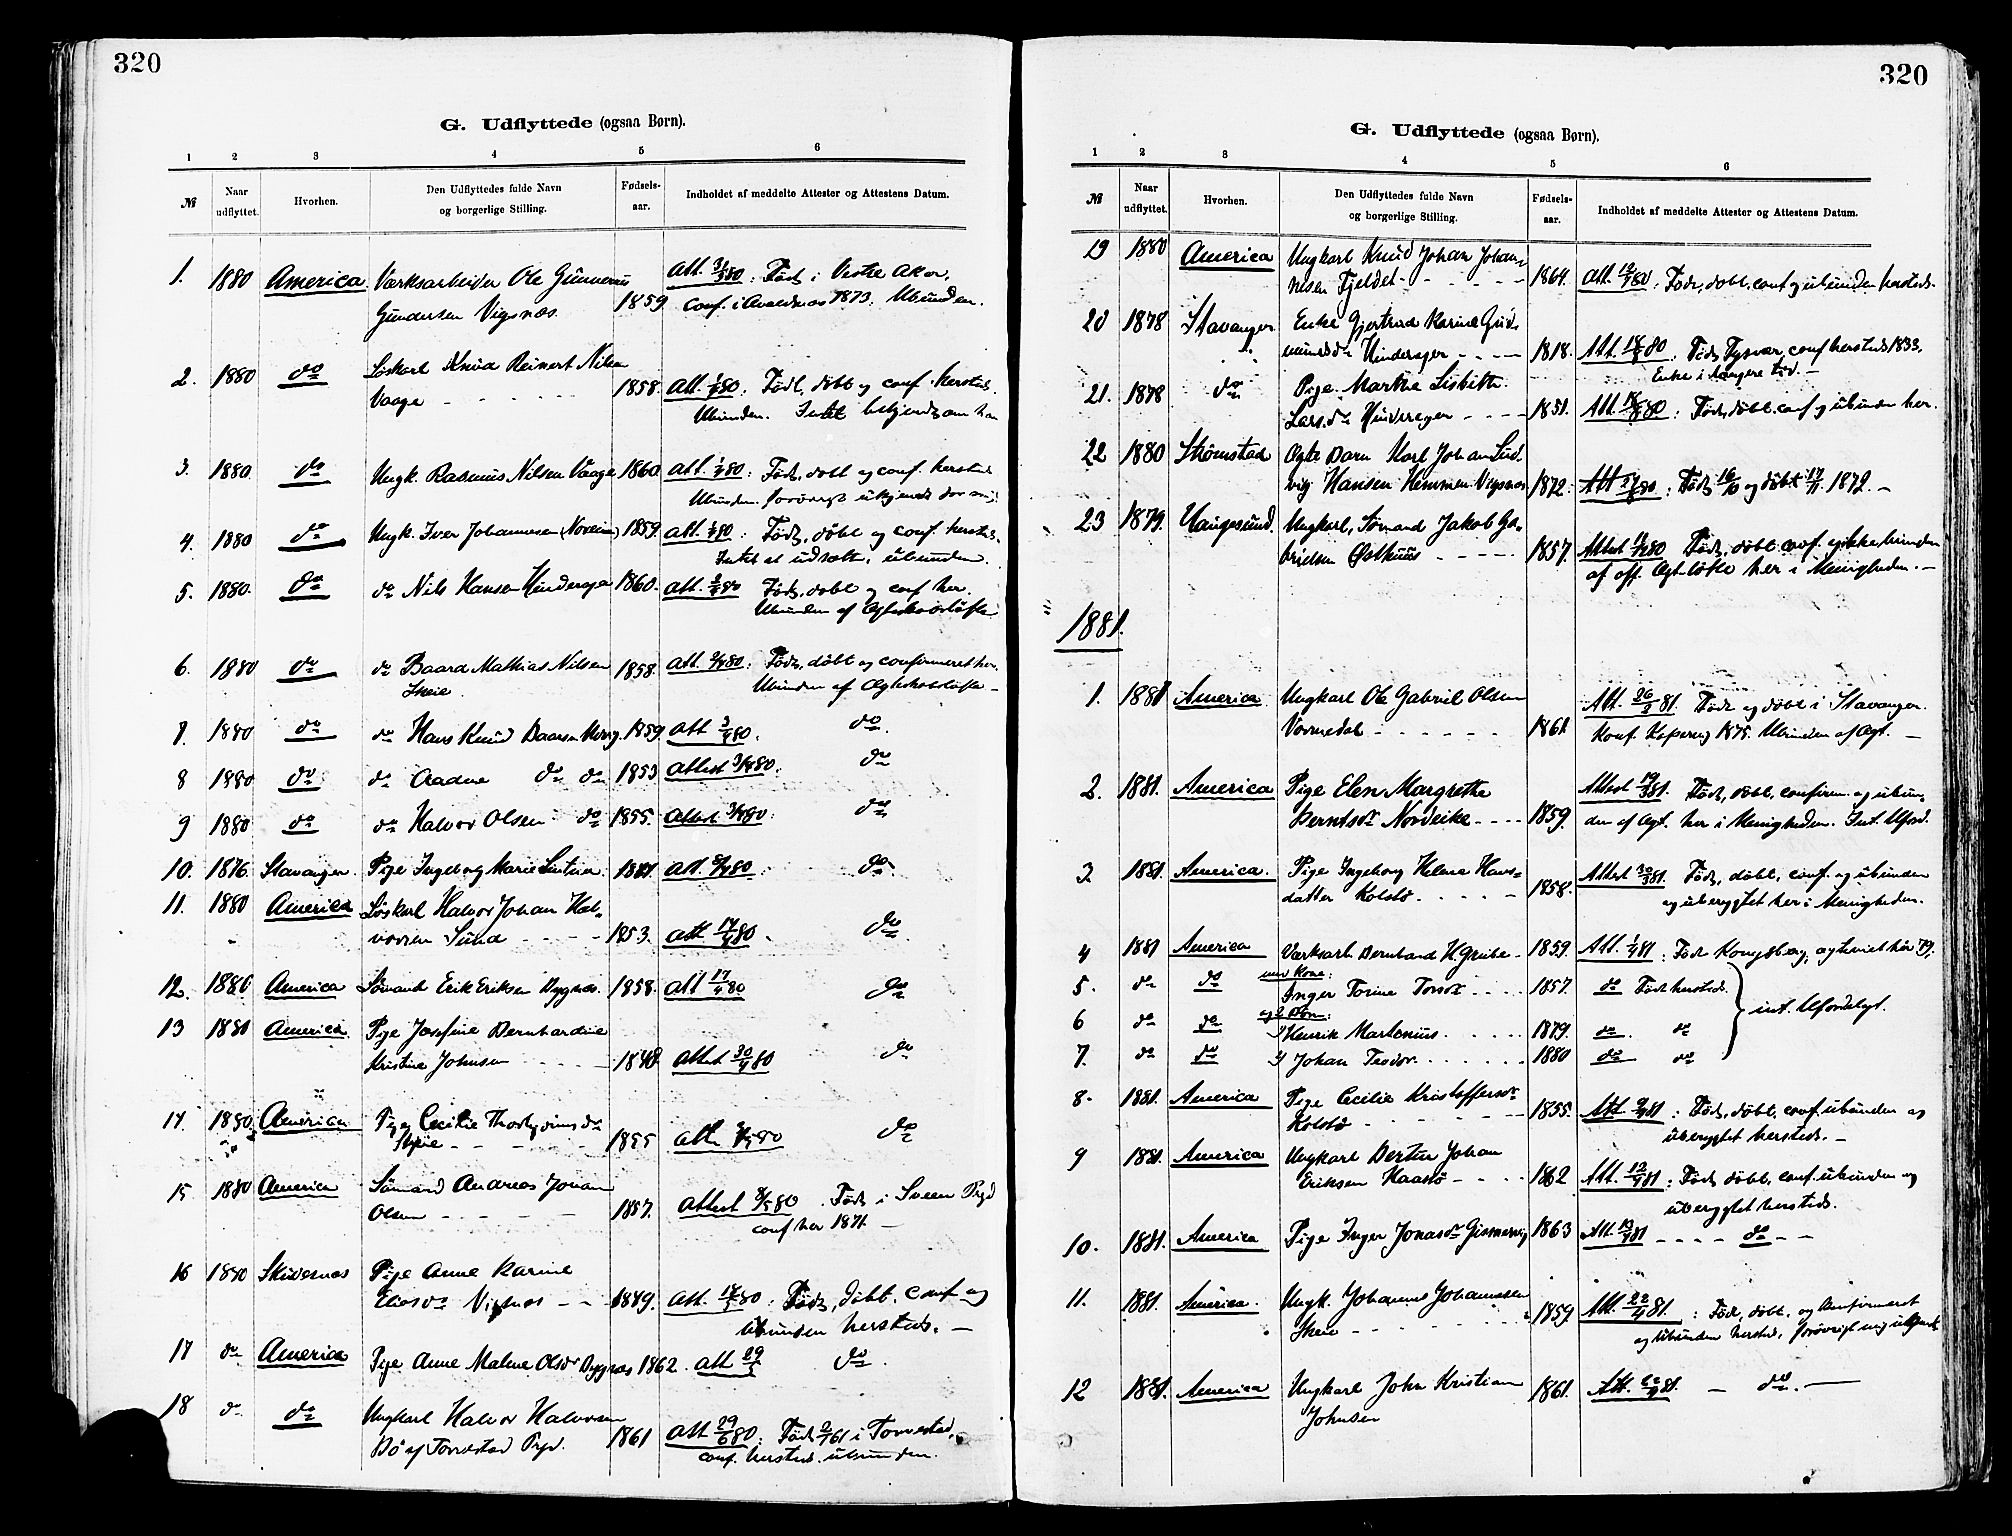 320
G. Udflyttede (ogsaa Børn).
1 2 3 4 5 6
№ Naar udflyttet. Hvorhen. Den Udflyttedes fulde Navn og borgerlige Stilling. Fødsels-aar. Indholdet af meddelte Attester og Attestens Datum.
1. 1880 America Værksarbeider Ole Gunnerius Att. 3/3 80: Født i Vestre Aker,
Gundersen Vigsnæs. 1859 conf. i Avaldsnæs 1873. Ubunden.
2. 1880 do Løskarl Knud Reinert Nilsen
Vaage - - - - 1858 Att. 1/4 80. Født, døbt og conf. hersteds.
Ubunden. Intet bekjendt om ham
3. 1880 do Ungk. Rasmus Nilsen Vaage 1860 Att. 1/4 80: Født, døbt og conf. hersteds
Ubunden. forøvrigt ukjendt
4. 1880 do Ungk. Iver Johannesen (Norheim) 1859. Att. 1/4 80: Født, døbt og conf. hersteds.
Intet at udsætte. ubunden.
5. 1880. do do Nils Hansen Hinderager 1860. Att. 2/4 80 Født, døbt og conf her.
Ubunden af Ægteskabsløfte
6. 1880 do do Baard Mathias Nilsen 1858. Att. 2/4 80: Født, døbt og confirmeret her.
Skeie Ubunden af Ægteskabsløfte -
7. 1880 do do Hans Knud Baarsen 1859 Att 3/4 80. do.
8 1880 do do Aadne do do 1853 Attest 3/4 80: do
9 1880 do do Halvor Olsen do 1855. Attest 3/4 80: do
10. 1876. Stavanger. Pige Ingeborg Marie Att. 80. do
11. 1880 America Løskarl Halvor Johan Hal-
vorsen Sund - - - 1853. Att 17/4 80. do
12. 1880 America Sømand Erik Eriksen Bygnæs. 1858. Att 17/4 80 do
13 1880 America Pige Josefine Bernhardine
Kristine Johnsen - - - 1848 Attest 30/4 80 do
14. 1880. America Pige Cecilie
Skeie - - - 1855 Att. 80 do
15 1880 America Sømand Andreas Johan
Olsen - - - - 1857. Attest 8/5 80. Født i Sveen Prgd
conf her 1871 -
16 1880 Skudesnæs Pige Anne Karine
Eliasdr Vigsnæs - - 1849. Att. 18/5 80: Født, døbt, conf og
Ubunden hersteds. -
17 do America Pige Anne Malene Olsdr Bygnæs 1862. Att 29/5 do.
18 do do Ungkarl Halvor Halvorsen
Bø af Torvestad Prgd. 1861 Att 29/6 80: Født 2/1 61 i Torvestad,
conf. hersteds. ubunden.
320
G. Udflyttede (ogsaa Børn).
1 2 3 4 5 6
№ Naar udflyttet. Hvorhen. Den Udflyttedes fulde Navn og borgerlige Stilling. Fødsels-aar. Indholdet af meddelte Attester og Attestens Datum.
19 1880 America Ungkarl Knud Johan Johan-
nesen Fjeldet - - - 1864. Att. 80. Født, døbt, conf og ubunden hersteds.
20 1878 Stavanger Enke Gjertrud Karine Gud-
mundsdr Hinderager - - - 1818. Att. 18/8 80: Født Tysvær, conf hersteds 1833.
Enke i længere tid. -
21. 1878 do Pige Martha Lisbeth
Larsdr Hinderager - - - 1851. Att. 18/8 80: Født, døbt, conf og ubunden her.
22 1880 Strømstad Ægte Barn Karl Johan Lud-
vig Hansen Hemmen Vigsnæs 1872. Att 80: Født 16/10 og døbt 17/11 1872. -
23 1879. Haugesund. Ungkarl, Sømand Jakob Ga-
brielsen Østhuus - - - 1857. Attest 80 Født, døbt conf. og ikke bunden
af off. Ægt.løfte her i Menigheden. -
1881.
1. 1881 America Ungkarl Ole Gabriel Olsen Att. 26/3 81. Født og døbt i Stavanger.
Vormedal - - - - 1861. Konf. Kopervig 1875. Ubunden af Ægt. -
2. 1881. America Pige Elen Margrethe Attest 19/3 81. Født, døbt, confirm. og ubun-
Berntsdr Nordeike - - - 1859. den af Ægt. her i Menigheden. Int. Uford.
3. 1881. America. Pige Ingeborg Helene Hans- Attest 30/3 81. Født, døbt, conf. og ubunden
datter Kolstø. - - - 1858. og uberygtet her i Menigheden.
4 1881 America Værksarb. Bernhard H. Grube - 1859. Att. 1/4 81: Født Kongsberg, og
5. do do med Kone: Inger Torine 1857. do Født hersteds. int. Ufordelagt.
6 do do og 2 Børn: 1) Henrik Martenius. - - 1879. do do
7. do do 2) Johan Teodor. - - - 1880 do do
8. 1881. America Pige Cecilie Kristoffersdr
Kolstø - - - 1855. Att 9/4 81: Født, døbt, conf. ubunden og
uberygtet hersteds. -
9 1881. America Ungkarl Bertin Johan
Eriksen Haastø - - - 1862 Att. 12/4 81: Født, døbt, conf. ubunden og
uberygtet hersteds.
10. 1881. America Pige Inger Jonasdr Gismervig 1863 Att. 19/4 81 - - - - do - -
11. 1881. America. Ungk. Johannes Johannessen
Skeie - - - 1859 Att. 22/4 81.: Født, døbt, og konfirmeret
og ubunden hersteds, forøvrigt mig ubekjendt
12 1881. America Ungkarl John Kristian 1861. Att. 22/4 81. - do. -
Johnsen